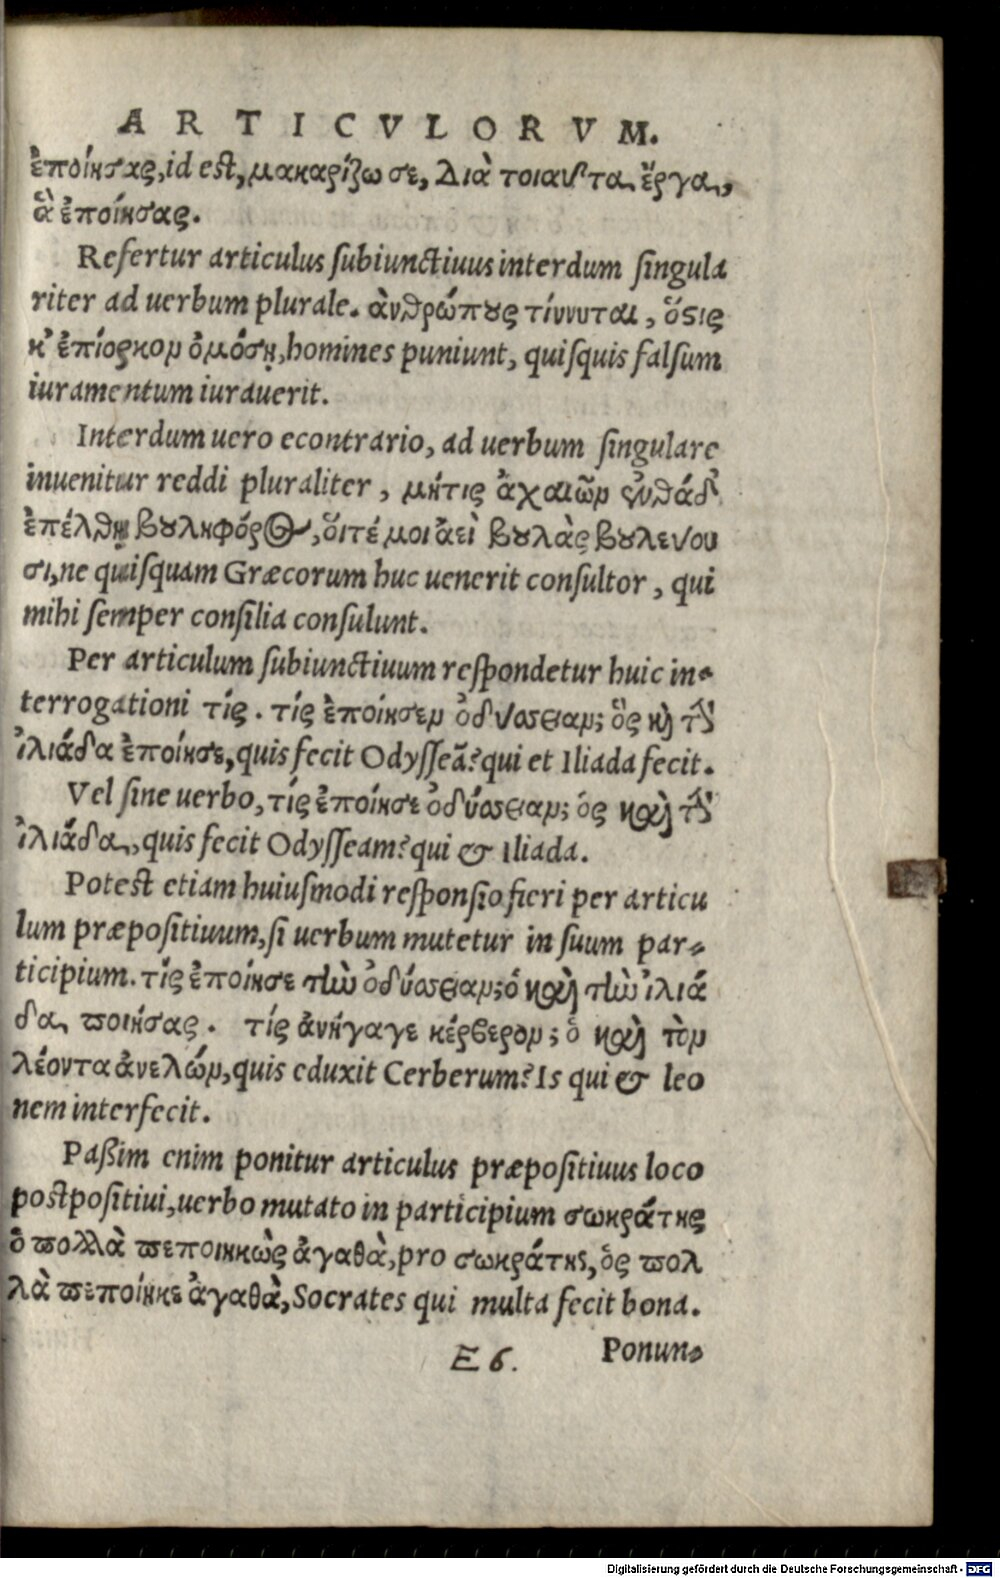 ARTICVLORVM.
ἐποίησας, id est, μακαρίζω σε, διὰ τοιαῦτα ἔργα,
ἃ ἐποίησας.
Refertur articulus subiunctiuus interdum singula
riter ad uerbum plurale. ἀνθρώπους τίννυται, ὅστις
κ' ἐπίορκον ὀμόσῃ, homines puniunt, quisquis falsum
iuramentum iurauerit.
Interdum uero econtrario, ad uerbum singulare
inuenitur reddi pluraliter, μήτις ἀχαιῶν ἐνθάδ'
ἐπέλθῃ βουληφόρος, ὅιτέ μοι ἀεὶ βουλὰς βουλεύου
σι, ne quisquam Græcorum huc uenerit consultor, qui
mihi semper consilia consulunt.
Per articulum subiunctiuum respondetur huic in-
terrogationi τίς. τίς ἐποίησεν ὀδύσσειαν; ὃς καὶ τὴν
ἰλιάδα ἐποίησε, quis fecit Odysseã? qui et Iliada fecit.
Vel sine uerbo, τίς ἐποίησε ὀδύσσειαν; ὁς καὶ τὴν
ἰλιάδα, quis fecit Odysseam? qui & Iliada.
Potest etiam huiusmodi responsio fieri per articu
lum præpositiuum, si uerbum mutetur in suum par-
ticipium. τίς ἐποίησε τὴν ὀδύσσειαν; ὁ καὶ τὴν ἰλιά
δα ποιήσας. τίς ἀνήγαγε κέρβερον; ὁ καὶ τὸν
λέοντα ἀνελών, quis eduxit Cerberum? Is qui & leo
nem interfecit.
Paßim enim ponitur articulus præpositiuus loco
postpositiui, uerbo mutato in participium σωκράτης
ὁ πολλὰ πεποιηκὼς ἀγαθὰ, pro σωκράτης, ὁς πολ
λὰ πεποίηκε ἀγαθὰ, Socrates qui multa fecit bona.
E 6. Ponun-
Digitalisierung gefördert durch die Deutsche Forschungsgemeinschaft - DFG